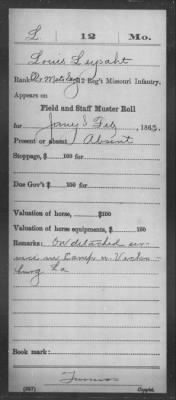 L 12 Mo.
Louis
Rank 12 Reg't Missouri Infantry.
Appears on
Field and Staff Muster Roll
for Jany & Feb, 1863.
Present or absent Absent
Stoppage, $ 100 for
Due Gov't $ 100 for
Valuation of horse, $ 100
Valuation of horse equipments, $ 100
Remarks: On detached ser-
vice in Camp n Vicks-
burg La
Book mark:
(857) Copyist.